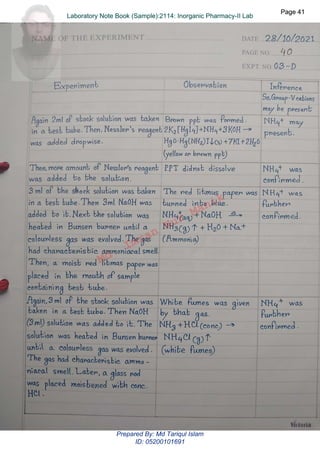 Laboratory Note Book (Sample):2114: Inorganic Pharmacy-II Lab
Page 41
NAME OF THE EXPERIMENT
DATE 28/10/2021
PAGE NO. 40
EXPT. NO. 03-D
Experiment
Observation
Inference
So, Group-V cations
may be present
Again 2ml of stock solution was taken
in a test tube. Then, Nessler's reagent
was added dropwise.
Brown ppt was formed.
2K2[HgI4]+NH4+3KOH →
HgO·Hg(NH2)I↓(s)+7KI+2H2O
(yellow or brown ppt)
NH4+ may
present.
Then, more amount of Nessler's reagent
was added to the solution.
PPT didnot dissolve
NH4+ was
confirmed.
3 ml of the stock solution was taken
in a test tube. Then 3ml NaOH was
added to it. Next the solution was
heated in Bunsen burner until a
colourless gas was evolved. The gas
had characteristic ammoniacal smell.
Then, a moist red litmas paper was
placed in the mouth of sample
containing test tube.
The red litimas paper was
turned into blue.
NH4+(aq) + NaOH →
NH3(g)↑ + H2O + Na+
(Ammonia)
NH4+ was
further
confirmed.
Again, 3 ml of the stock solution was
taken in a test tube. Then NaOH
(3 ml) solution was added to it. The
solution was heated in Bunsen burner
until a colourless gas was evolved.
The gas had characteristic ammo-
niacal smell. Later, a glass rod
was placed moistened with conc.
HCl.
White fumes was given
by that gas.
NH3 + HCl (conc.) →
NH4Cl(g)↑
(white fumes)
NH4+ was
further
confirmed.
Prepared By: Md Tariqul Islam
ID: 05200101691